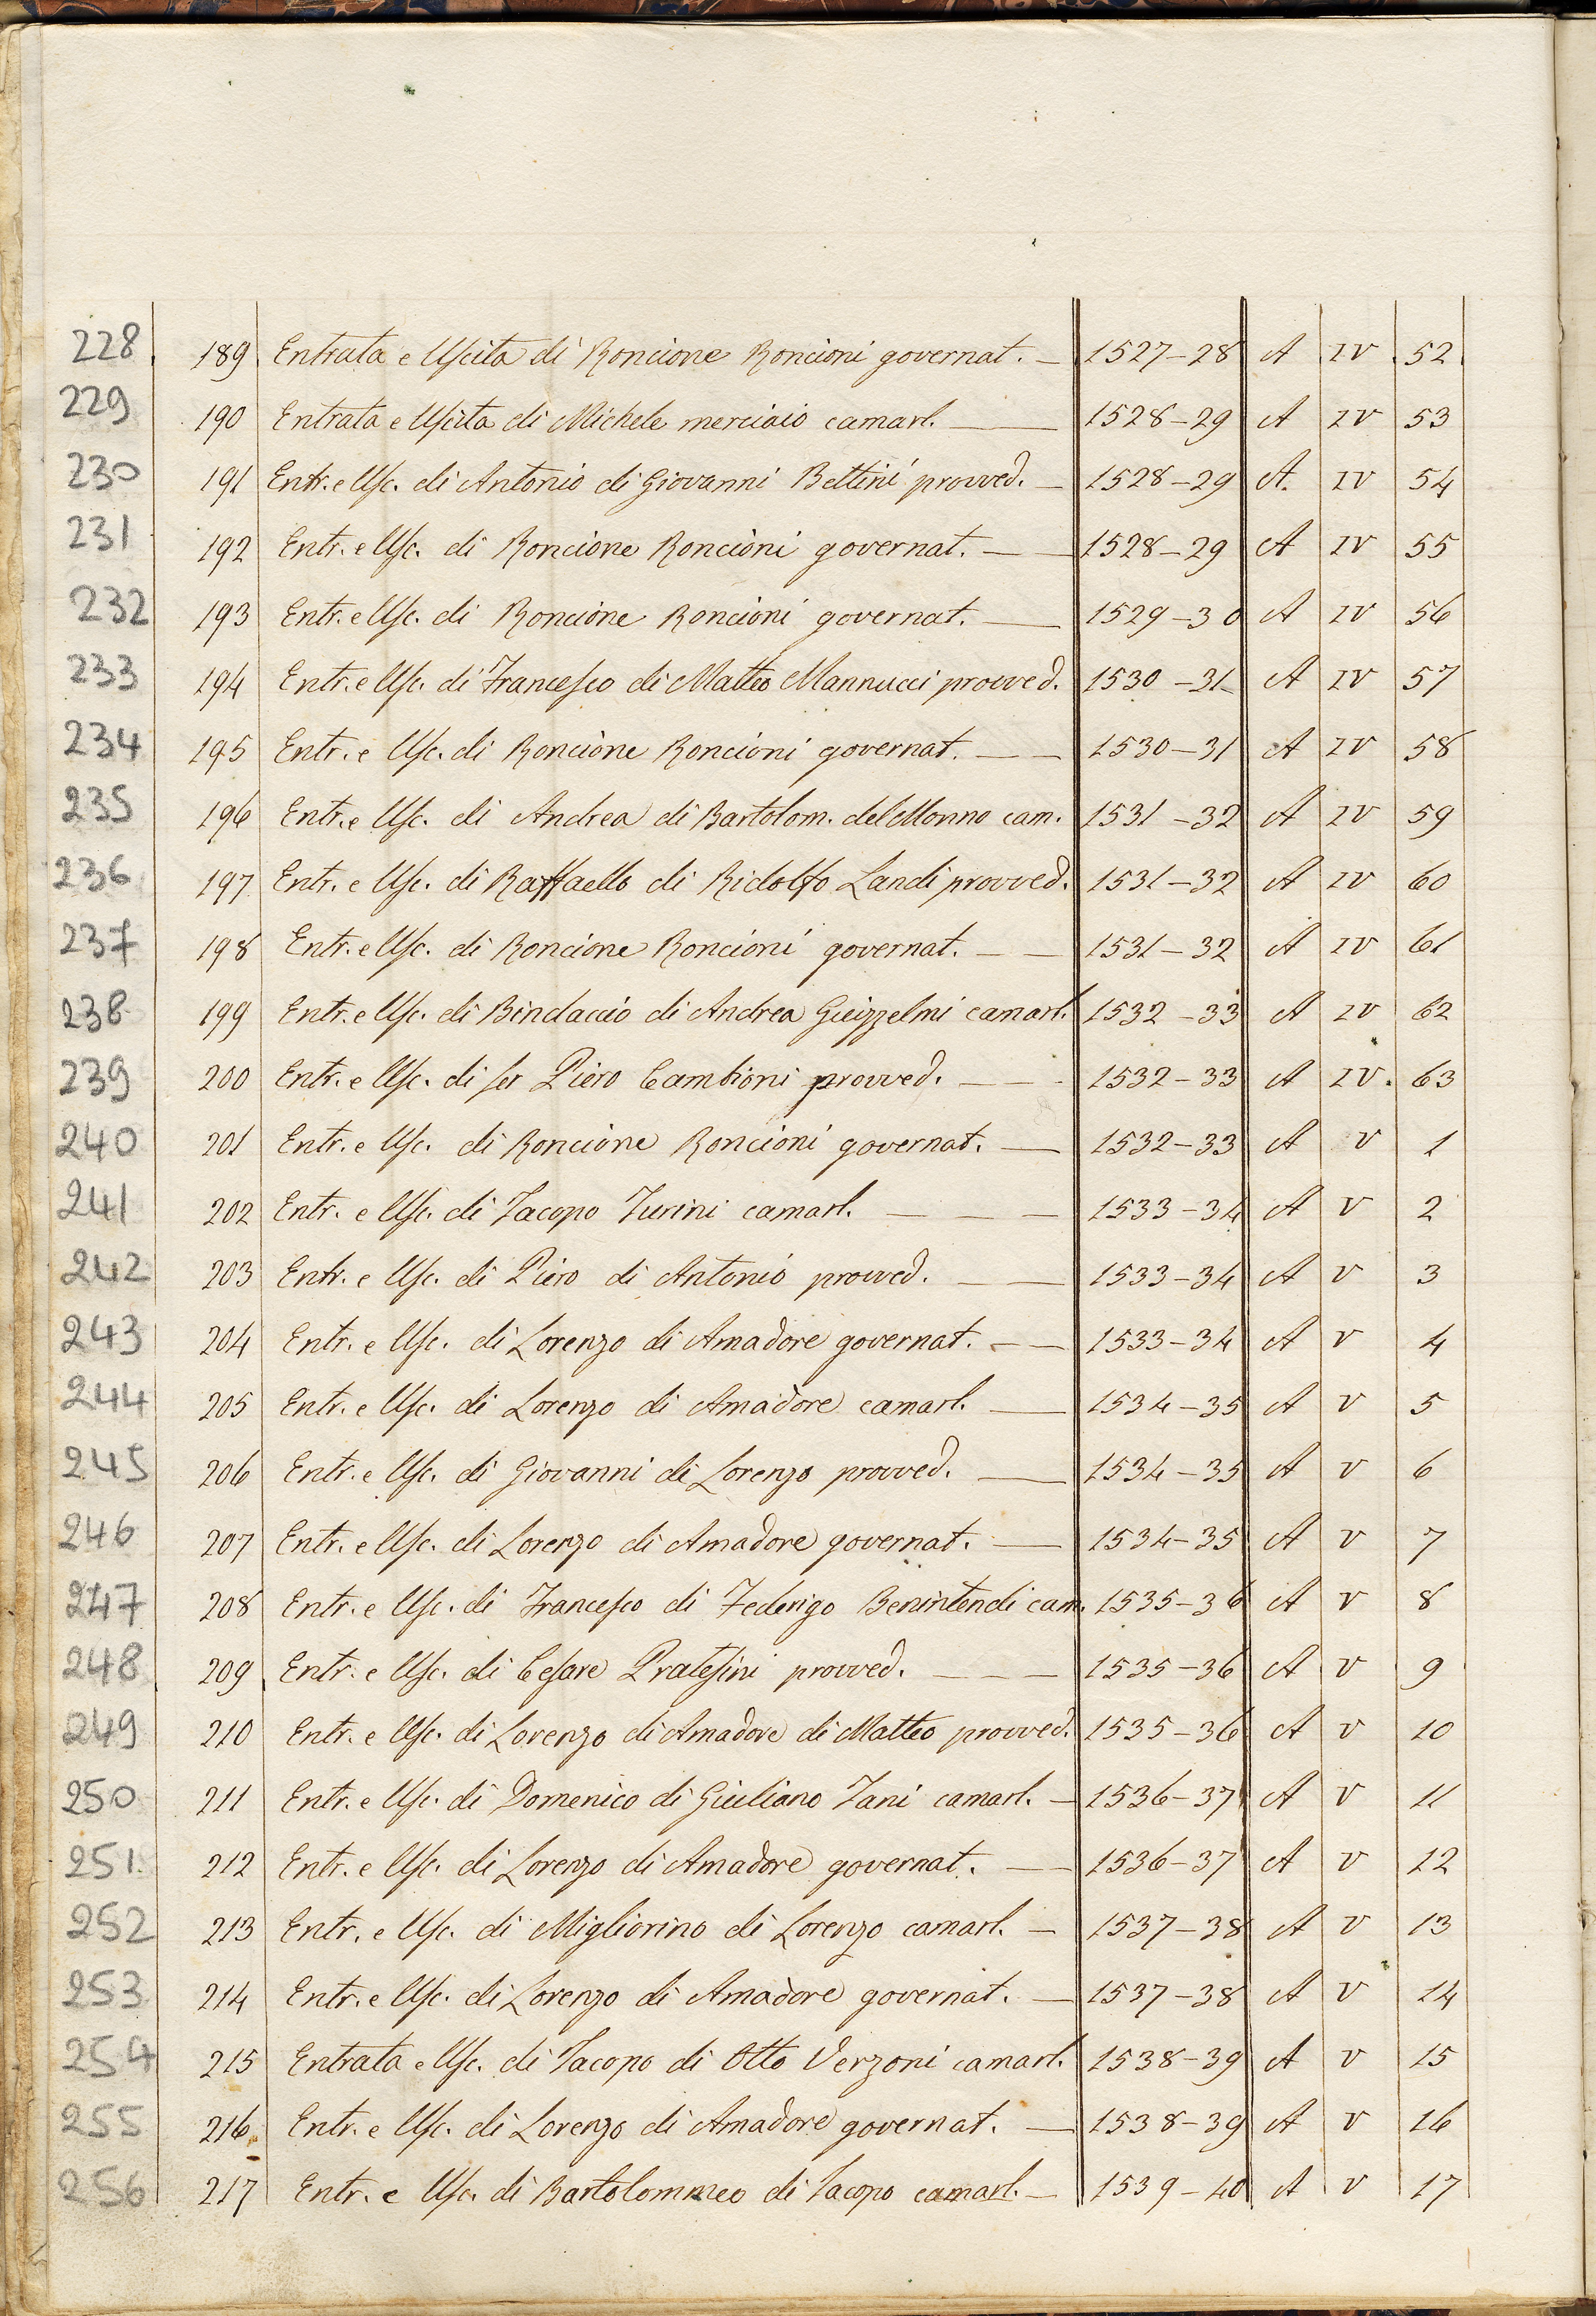 228 189 Entrata e Uscita di Roncione Roncioni governat. — 1527-28 A IV 52
229 190 Entrata e Uscita di Michele merciaio camarl. — 1528-29 A IV 53
230 191 Entr. e Usc. di Antonio di Giovanni Bettini provved. — 1528-29 A. IV 54
231 192 Entr. e Usc. di Roncione Roncioni governat. — — 1528-29 A IV 55
232 193 Entr. e Usc. di Roncione Roncioni governat. — 1529-30 A IV 56
233 194 Entr. e Usc. di Francesco di Matteo Mannucci provved. 1530-31 A IV 57
234 195 Entr. e Usc. di Roncione Roncioni governat. — — 1530-31 A IV 58
235 196 Entr. e Usc. di Andrea di Bartolom. del Monno cam. 1531-32 A IV 59
236 197 Entr. e Usc. di Raffaello di Ridolfo Landi provved. 1531-32 A IV 60
237 198 Entr. e Usc. di Roncione Roncioni governat. — — 1531-32 A IV 61
238 199 Entr. e Usc. di Bindaccio di Andrea Guizzelmi camarl. 1532-33 A IV 62
239 200 Entr. e Usc. di ser Piero Cambioni provved. — — 1532-33 A IV. 63
240 201 Entr. e Usc. di Roncione Roncioni governat. — 1532-33 A V 1
241 202 Entr. e Usc. di Jacopo Turini camarl. — — — 1533-34 A V 2
242 203 Entr. e Usc. di Piero di Antonio provved. — — 1533-34 A V 3
243 204 Entr. e Usc. di Lorenzo di Amadore governat. — — 1533-34 A V 4
244 205 Entr. e Usc. di Lorenzo di Amadore camarl. — 1534-35 A V 5
245 206 Entr. e Usc. di Giovanni di Lorenzo provved. — 1534-35 A V 6
246 207 Entr. e Usc. di Lorenzo di Amadore governat. — 1534-35 A V 7
247 208 Entr. e Usc. di Francesco di Federigo Benintendi cam. 1535-36 A V 8
248 209 Entr. e Usc. di Cesare Pratesini provved. — — 1535-36 A V 9
249 210 Entr. e Usc. di Lorenzo di Amadore di Matteo provved. 1535-36 A V 10
250 211 Entr. e Usc. di Domenico di Giuliano Tani camarl. — 1536-37 A V 11
251 212 Entr. e Usc. di Lorenzo di Amadore governat. — 1536-37 A V 12
252 213 Entr. e Usc. di Migliorino di Lorenzo camarl. — 1537-38 A V 13
253 214 Entr. e Usc. di Lorenzo di Amadore governat. — 1537-38 A V 14
254 215 Entrata e Usc. di Jacopo di Otto Verzoni camarl. 1538-39 A V 15
255 216 Entr. e Usc. di Lorenzo di Amadore governat. — 1538-39 A V 16
256 217 Entr. e Usc. di Bartolommeo di Jacopo camarl. — 1539-40 A V 17